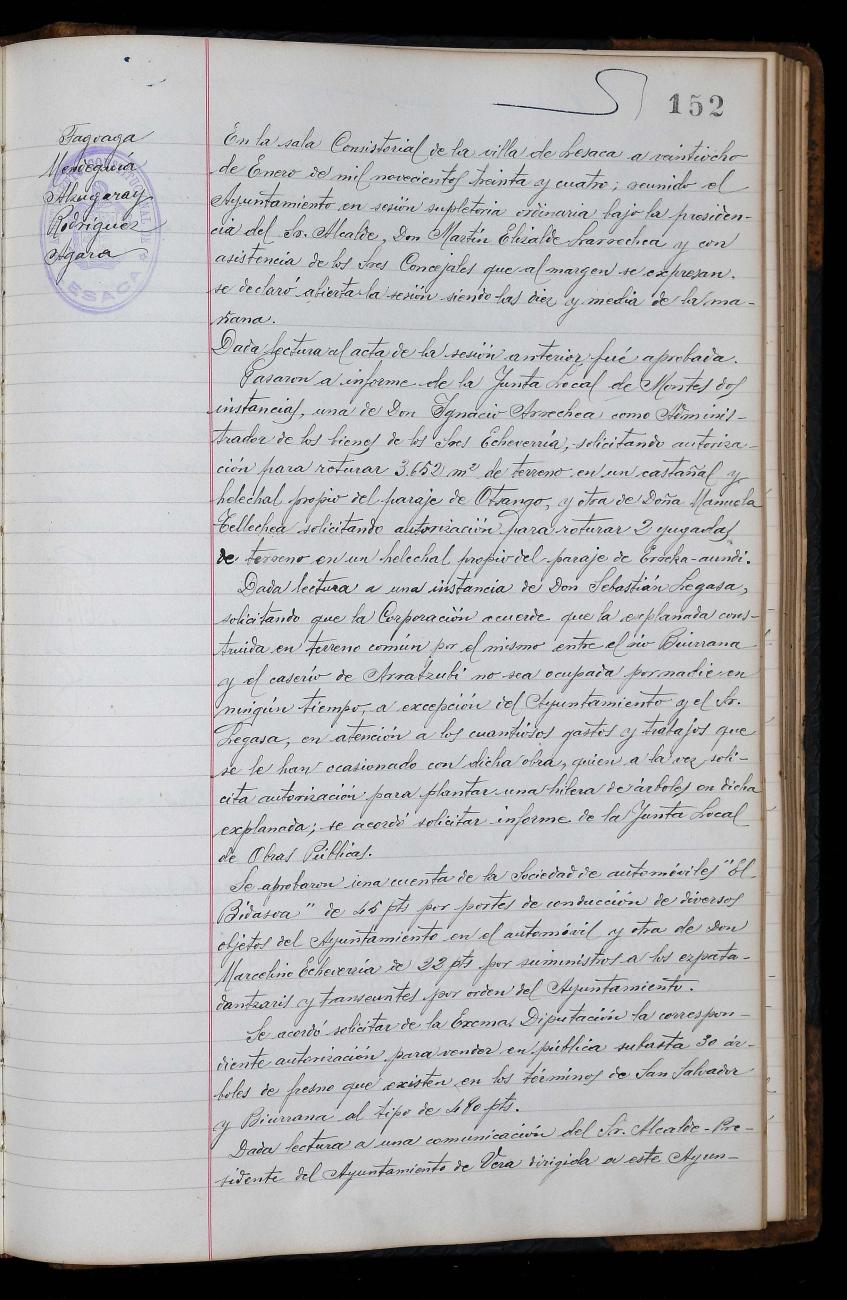 152
Fagoaga
Mendeguia
Alzugaray
Rodriguez
Agara
CONSTITUCIONAL DE
LESACA
En la sala Consistorial de la villa de Lesaca a vaintiocho
de Enero de mil novecientos treinta y cuatro; reunido el
Ayuntamiento en sesión supletoria ordinaria bajo la presiden-
cia del Sr. Alcalde, Don Martín Elizalde Larrechea y con
asistencia de los Sres Concejales que al margen se expresan.
se declaró abierta la sesión siendo las diez y media de la ma-
ñana.
Dada lectura al acta de la sesión anterior fué aprobada.
Pasaron a informe de la Junta Local de Montes dos
instancias, una de Don Ignacio Arrechea como Adminis-
trador de los bienes de los Sres Echeverría, solicitando autoriza-
ción para roturar 3.652 m² de terreno en un castañal y
helechal propio del paraje de Otsango, y otra de Doña Manuela
Tellechea solicitando autorización para roturar 2 yugadas
de terreno en un helechal propio del paraje de Erreka-aundi.
Dada lectura a una instancia de Don Sebastián Legasa,
solicitando que la Corporación acuerde que la explanada cons-
truida en terreno común por el mismo entre el río Biurrana
y el caserío de Arratzubi no sea ocupada por nadie en
ningún tiempo, a excepción del Ayuntamiento y el Sr.
Legasa, en atención a los cuantiosos gastos y trabajos que
se le han ocasionado con dicha obra, quien a la vez soli-
cita autorización para plantar una hilera de árboles en dicha
explanada; se acordó solicitar informe de la Junta Local
de Obras Públicas.
Se aprobaron una cuenta de la Sociedad de automóviles "El
Bidasoa" de 45 pts por portes de conducción de diversos
objetos del Ayuntamiento en el automóvil y otra de Don
Marcelino Echeverría de 22 pts por suministros a los ezpata-
dantzaris y transeuntes por orden del Ayuntamiento.
Se acordó solicitar de la Excma. Diputación la correspon-
diente autorización para vender en pública subasta 30 ár-
boles de fresno que existen en los términos de San Salvador
y Biurrana al tipo de 480 pts.
Dada lectura a una comunicación del Sr. Alcalde-Pre-
sidente del Ayuntamiento de Vera dirigida a este Ayun-